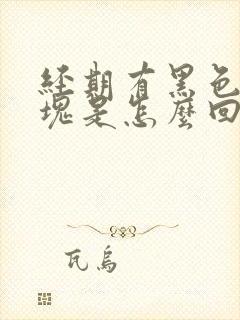 經期有黑色
塊是怎麼回
瓦烏